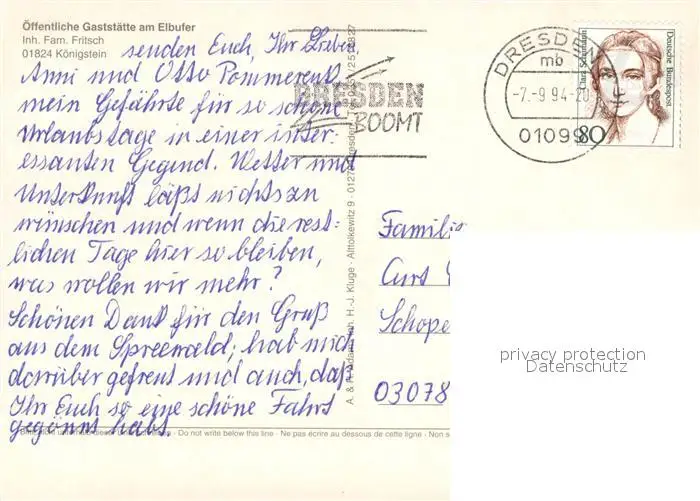 Öffentliche Gaststätte am Elbufer
Inh. Fam. Fritsch
01824 Königstein
senden Euch, Ihr Lieben,
Anni und Otto Pommerenk,
mein Gefährte für so schöne
Urlaubstage in einer inter=
essanten Gegend. Wetter und
Unterkunft läßt nichts zu
wünschen und wenn die rest=
lichen Tage hier so bleiben,
was wollen wir mehr?
Schönen Dank für den Gruß
aus dem Spreewald; hab mich
darüber gefreut und auch, daß
Ihr Euch so eine schöne Fahrt
gegönnt habt.
Do not write below this line - Ne pas écrire au dessous de cette ligne - Non s
DRESDEN
BOOMT
DRESDEN
mb
-7.-9 94-20
01099
80
Clara Schumann
Deutsche Bundespost
A. & R. Adam, Inh. H.-J. Kluge - Alttolkewitz 9 - 01279 Dresden
Familie
Curt
Schope
03078
privacy protection
Datenschutz